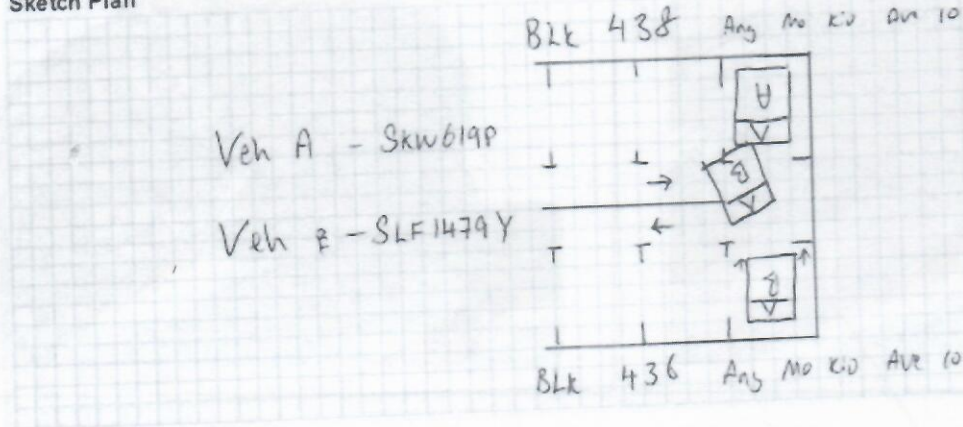 Sketch Plan
BLK 438 Ang Mo Kio Ave 10
Veh A - SKW619P
Veh B - SLF1479Y
A
B
B
BLK 436 Ang Mo Kio Ave 10